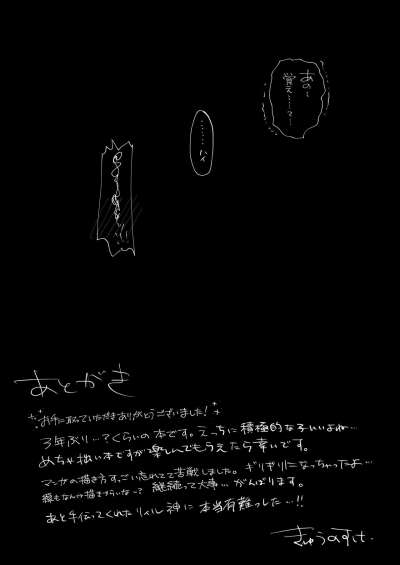 あの〜
覚え……て…
……ハイ
あとがき
お手に取っていただきありがとうございました!
3年ぶり…?くらいの本です。えっちに積極的な子いいよね…
めちゃ拙い本ですが楽しんでもらえたら幸いです。
マンガの描き方すごい忘れてて苦戦しました。ギリギリになっちゃったよ…
継続って大事…がんばります。
あと手伝ってくれたリィル神に本当有難っした…!!